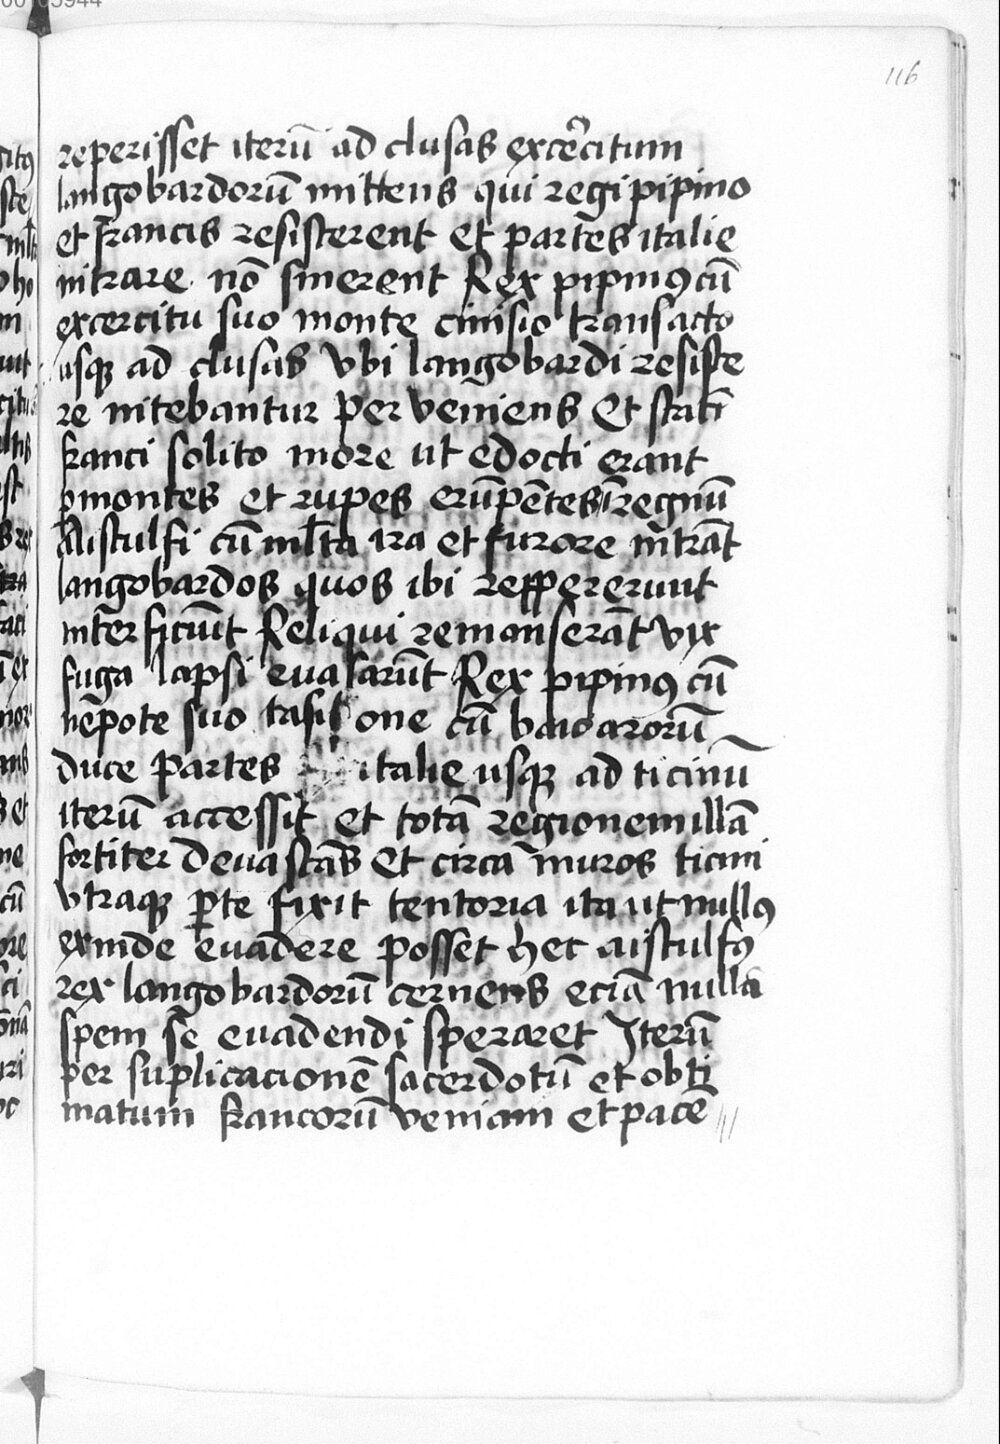 116
reperisset iterū ad clusas excercitum
langobardorū mittens qui regi pipino
et francis resisterent et partes italie
intrare nō sinerent Rex pipinꝰ cū
excercitu suo monte cinisio transacto
usqꝫ ad clusas vbi langobardi resiste
re nitebantur per veniens Et statī
franci solito more ut edocti erant
ꝑ montes et rupes erūpētes ī regnū
Aistulfi cū ml̄ta ira et furore intrāt
langobardos quos ibi reppererunt
interficiūt Reliqui remanserāt vix
fuga lapsi euasarūt Rex pipinꝰ cū
nēpote suo tasil one cū baioarorū
duce Partes italie usqꝫ ad ticinū
iterū accessit et totā regionem illā
fortiter deuastās Et circa muros ticini
vtraqꝫ ꝑte fixit tentoria ita ut nullꝰ
exinde euadere posset hec aistulfꝰ
rex langobardorū cernens eciā nulla
spem se euadendi speraret Iterū
per suplicacionē sacerdotū et obti
matum francorū veniam et pacē